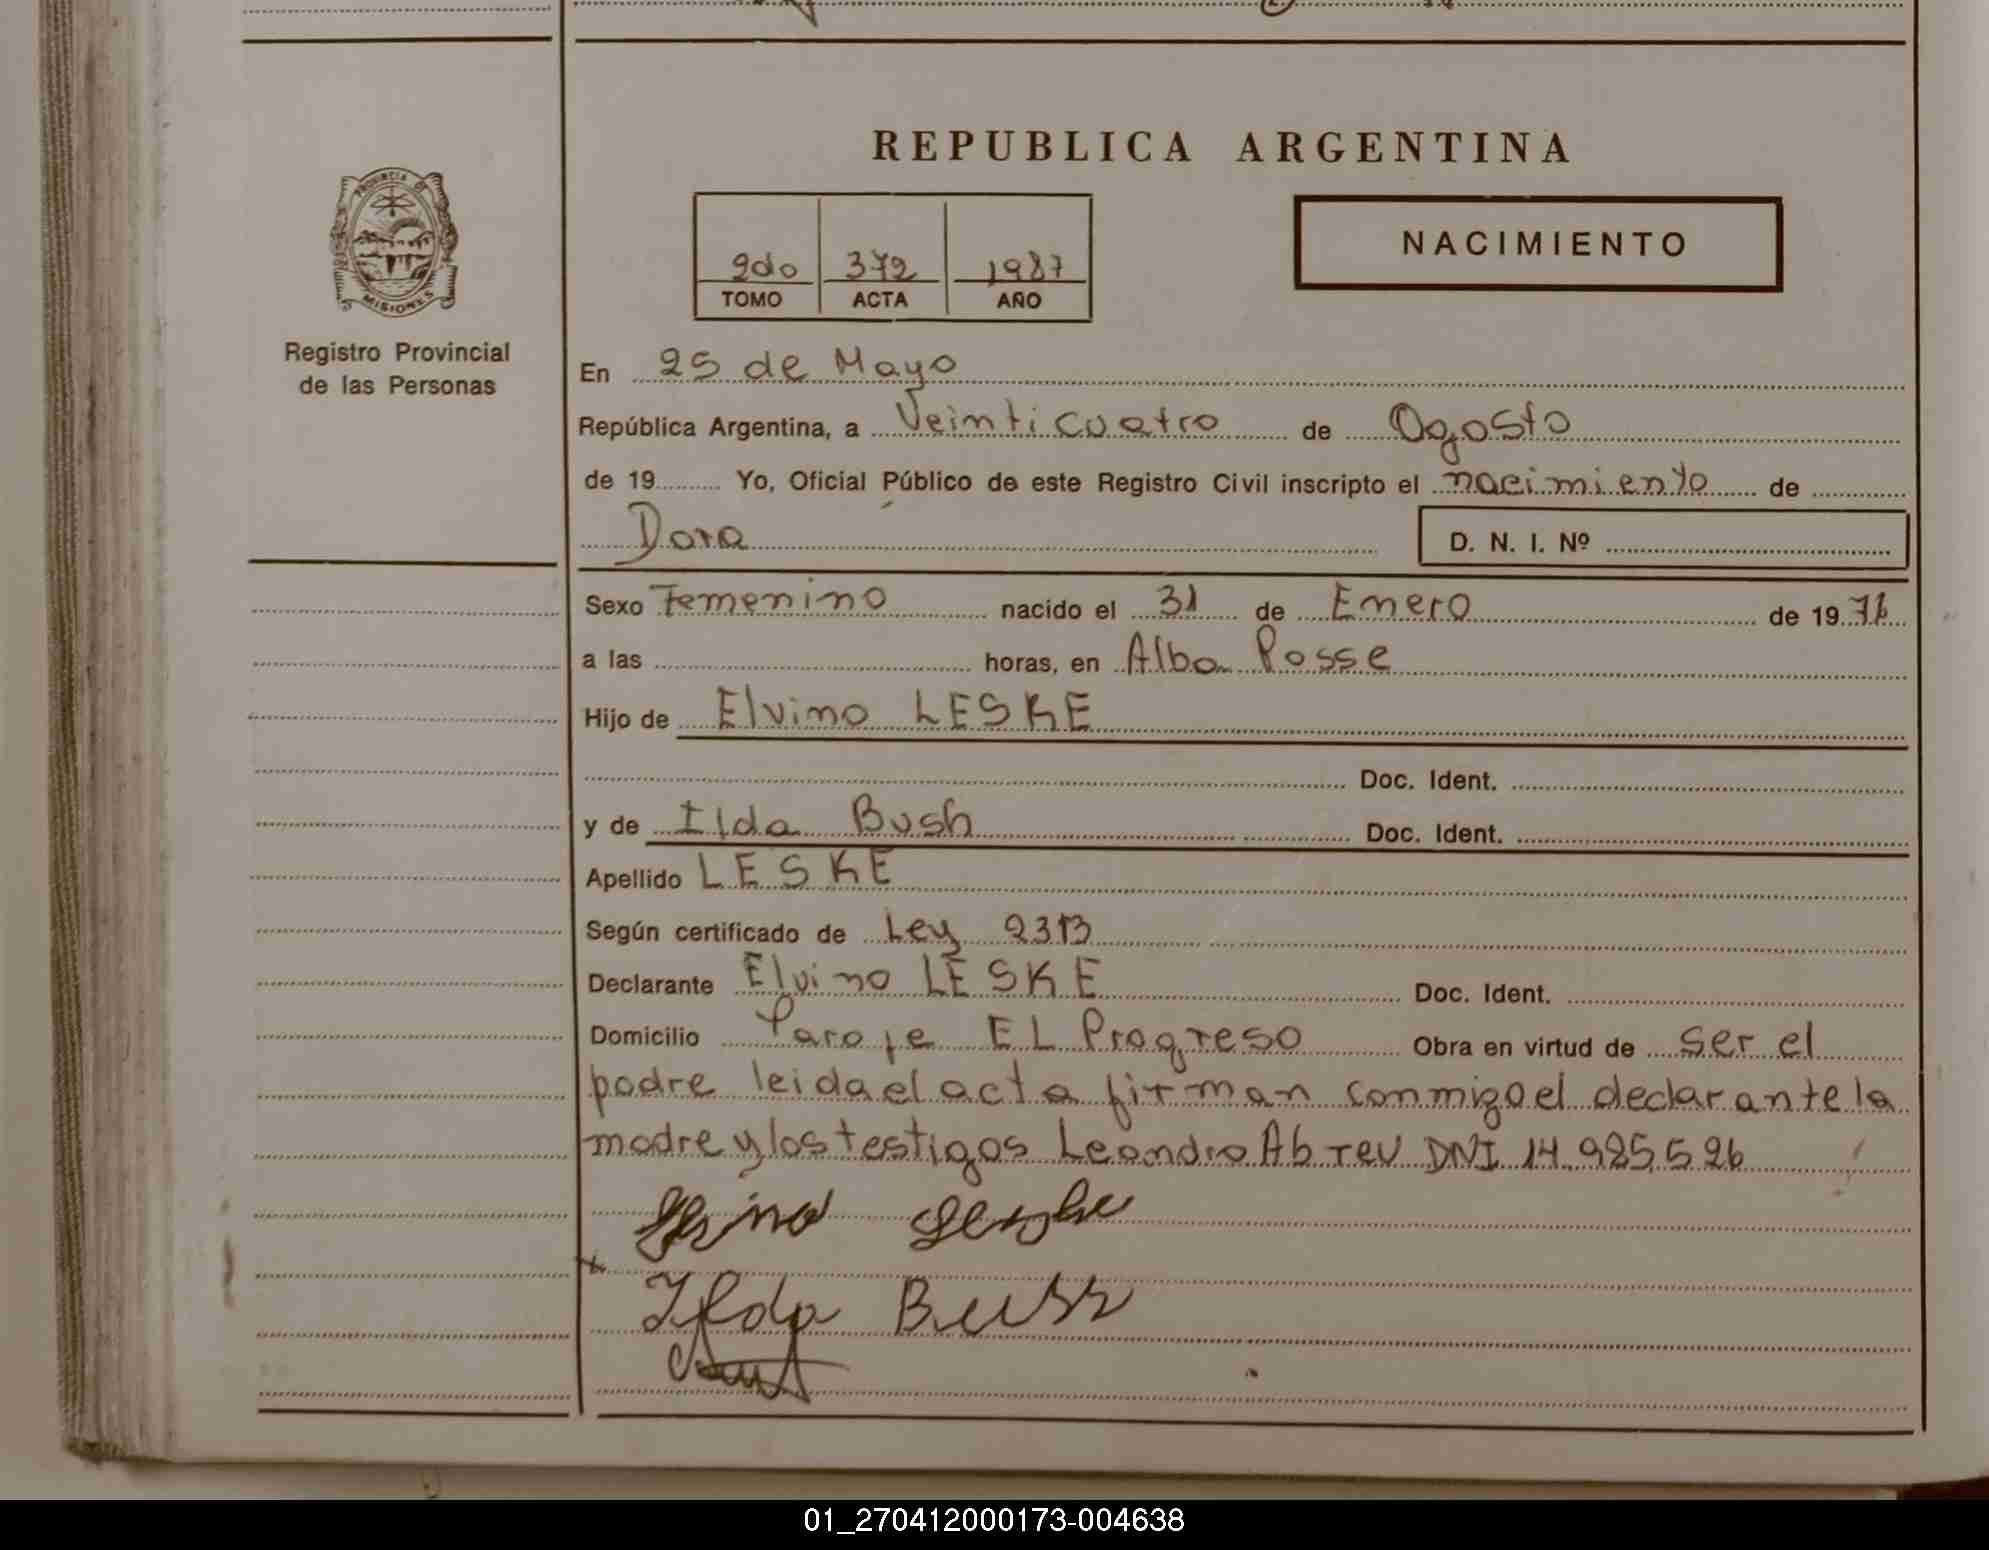 REPUBLICA ARGENTINA
PROVINCIA DE
MISIONES
Registro Provincial
de las Personas
2do 372 1987
TOMO ACTA AÑO
NACIMIENTO
En 25 de Mayo
República Argentina, a Veinticuatro de Agosto
de 19 Yo, Oficial Público de este Registro Civil inscripto el nacimiento de
Dora D. N. I. Nº
Sexo Femenino nacido el 31 de Enero de 19
a las horas, en Alba Posse
Hijo de Elvino LESKE
Doc. Ident.
y de Ilda Bush Doc. Ident.
Apellido LESKE
Según certificado de Ley
Declarante Elvino LESKE Doc. Ident.
Domicilio Paraje EL Progreso Obra en virtud de ser el
padre leida el acta firman conmigo el declarante la
madre y los testigos Leandro Abreu DNI 14.985.526
Ilda Buss
01_270412000173-004638